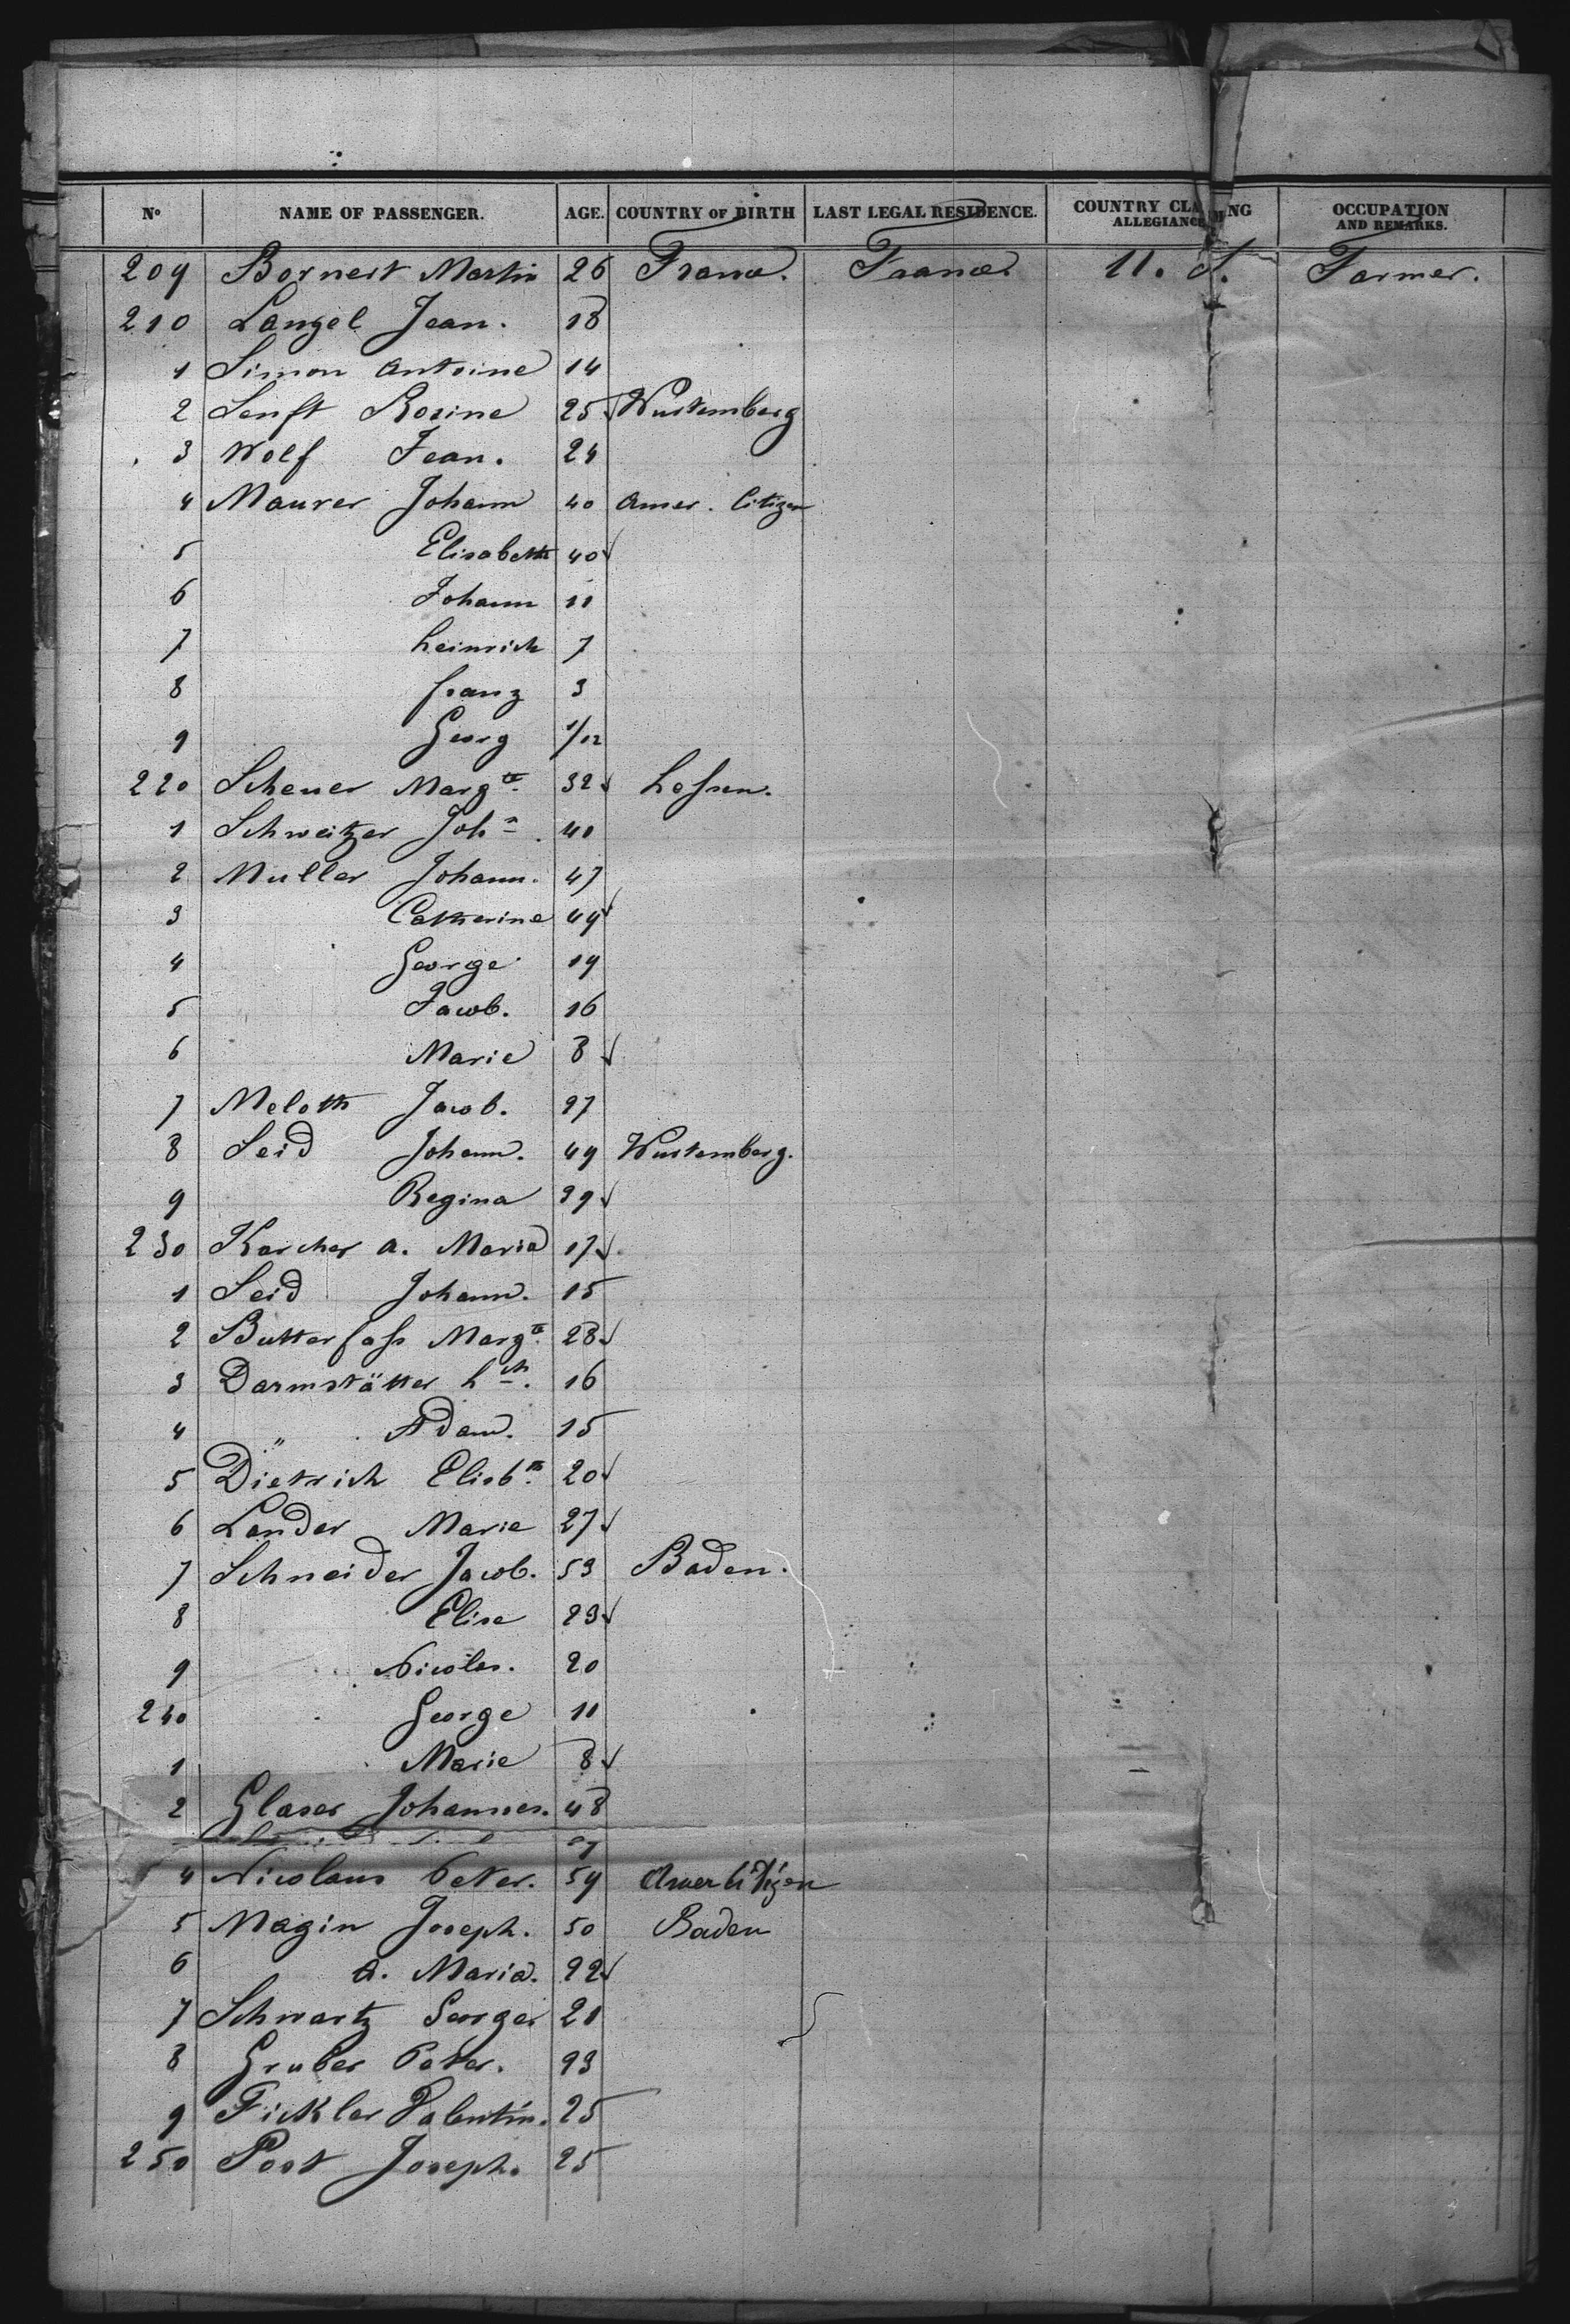 Nº NAME OF PASSENGER. AGE. COUNTRY OF BIRTH LAST LEGAL RESIDENCE. COUNTRY CLA NG ALLEGIANCE OCCUPATION AND REMARKS.
209 Bornert Martin 26 France. France. U. S. Farmer.
210 Langel Jean. 18
1 Simon Antoine 14
2 Senft Rosine 25 √ Wurtemberg
3 Wolf Jean. 24
4 Maurer Johann 40 Amer. Citizen
5 Elisabeth 40 √
6 Johann 11
7 heinrich 7
8 franz 3
9 Georg 1/12
220 Scheuer Margte. 32 √ hessen.
1 Schweitzer John. 40
2 Muller Johann. 47
3 Catherine 49 √
4 George 19
5 Jacob. 16
6 Marie 8 √
7 Meloth Jacob. 27
8 Seid Johann. 49 Wurtemberg.
9 Regina 39 √
230 Karcher A. Maria 17 √
1 Seid Johann. 15
2 Butterfass Margte. 28 √
3 Darmstätter hch. 16
4 " Adam. 15
5 Dietrich Elisbth. 20 √
6 Lander Marie 27 √
7 Schneider Jacob. 53 Baden.
8 Elise 23 √
9 Nicolas. 20
240 George 11
1 Marie 8 √
2 Glaser Johannes. 48
4 Nicolaus Peter. 59 Amer Citizen
5 Magin Joseph. 50 Baden
6 A. Maria. 22 √
7 Schwartz George 21
8 Gruber Peter. 23
9 Fickler Valentin. 25
250 Post Joseph. 25